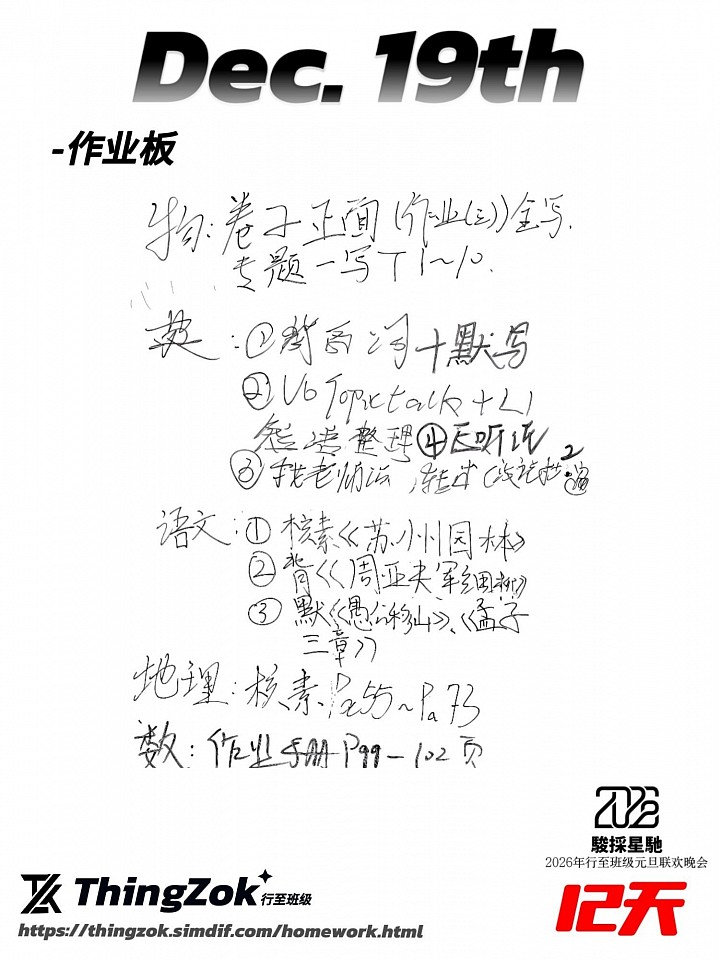 Dec. 19th
-作业板
物:卷子正面(作业(三))全写.
专题一写T1~10.
英:①背单词+默写
②U6 Topic talk + L1
整理④E听说
③找老师
语文:①核素《苏州园林》
②背《周亚夫军细柳》
③默《愚公移山》、《孟子
三章》
地理:核素Pa55~Pa73
数:作业手册P99-102页
2026
駿採星馳
2026年行至班级元旦联欢晚会
12天
ThingZok 行至班级
https://thingzok.simdif.com/homework.html